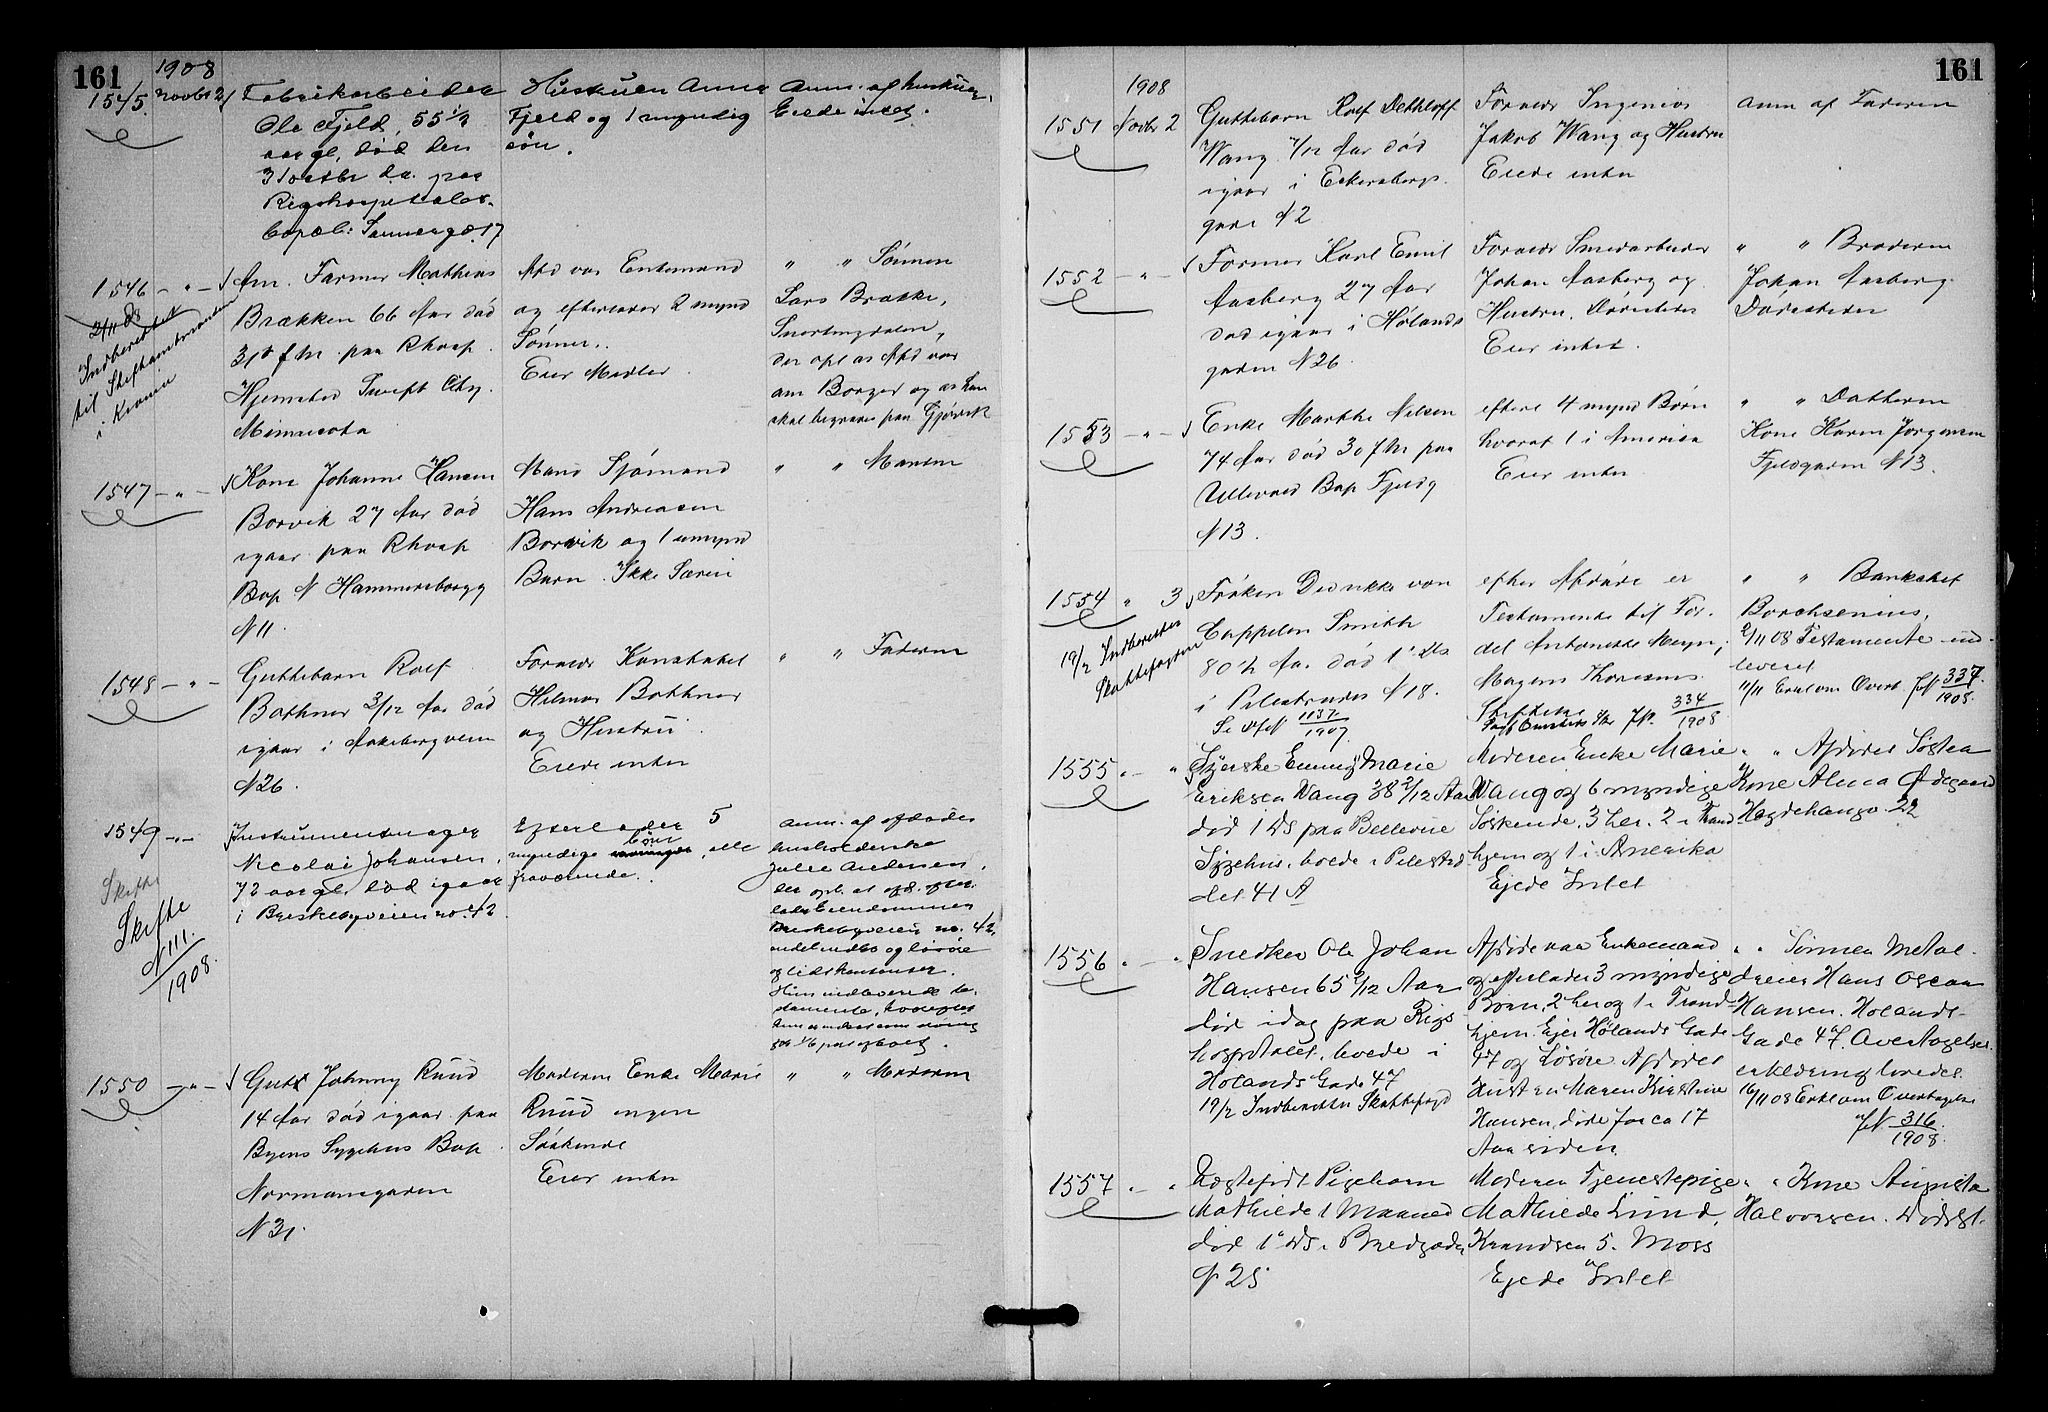 161
1908
1545. Novbr 2
Fabrikarbeider
Ole Fjeld, 55 1/2
aar gl, død den
31 octbr d.a. paa
Rigshospitalet.
bopæl: Sannergd. 17
Hustruen Anna
Fjeld og 1 myndig
søn.
Anm. af hustruen.
Eiede intet.
1546 - " -
2/11 08
Indberettet
til Stiftamtmanden
i Kr.ania
Am. Farmer Mathias
Brækken 66 Aar død
31te f M. paa Rhosp.
Hjemsted Swift City
Minnesota
Afd var Enkemand
og efterlader 2 mynd
Sønner.
Eier Midler
" " Sønnen
Lars Brække,
Snertingdalen,
der opl at Afd var
am Borger og at han
skal begraves paa Gjøvik
1547 - " -
Kone Johanne Hansen
Borvik 27 Aar død
igaar paa Rhosp
Bop N Hammersborgg
N 11.
Mand Sjømand
Hans Andreasen
Borvik og 1 umynd
Barn. Ikke Særeie
" " Manden
1548 - " -
Guttebarn Rolf
Bothner 3/12 Aar død
igaar i Akebergveien
N 26.
Forældr Konstabel
Hilmar Bothner
og Hustru
Eiede intet
" " Faderen
1549 - " -
Skifte
Skifte
N 111.
1908.
Instrumentmager
Nicolai Johansen,
72 aar gl. død igaar
i Briskebyveien no. 42
Efterlader 5
børn
myndige, alle
fraværende.
Anm. af afdødes
husholderske
Julie Andersen,
der opl. at afd. efter-
lod Eiendommen
Briskebyveien no. 42,
andet indbo og løsøre
og tidskontanter.
1550 - " -
Gutt Johnny Ruud
14 Aar død igaar paa
Byens Sygehus Bop
Normannsgaden
N 31.
Moderen Enke Marie
Ruud ingen
Søskende
Eier intet
" " Moderen
161
1908
1551 Novbr 2
Guttebarn Rolf Dethloff
Wang 7/12 Aar død
igaar i Eckersbergs
gade N 2
Forældr Ingeniør
Jakob Wang og Hustru
Eiede intet
anm af Faderen
1552 - " -
Former Karl Emil
Aasberg 27 Aar
død igaar i Hølands
gaden N 26.
Forældr Smedarbeider
Johan Aasberg og
Hustru, Dødsstedet
Eier intet.
" " Broderen
Johan Aasberg
Dødsstedet
1553 - " -
Enke Marthe Nilsen
74 Aar død 30 f M paa
Ullevaal Bop Fjeldg
N 13.
efterl 4 mynd Børn
hvoraf 1 i Amerika
Eier intet
" " Datteren
Kone Karen Jørgensen
Fjeldgaden N 13.
1554 " 3
19/2 Indberettet
Skattefogden
Frøken Didrikke von
Cappelen Smith
80 1/2 Aar død 1' ds
i Pilestrædet N 18.
Se Afst 1137
1907
efter Afdøde er
Testamente til For-
del Antonette Meyn,
Magens Thoresens
Stiftelse
334
1908
" " Bankchef
Borchsenius,
2/11 08 Testamente ind-
leveret
11/11 Erkl om Overt. JN 337
1908.
1555. - "
Syerske Emmy Marie
Eriksen Wang 38 2/12 Aar
død 1 ds paa Bellevue
Sygehus, boede i Pilestræ
det 41 A
Moderen Enke Marie
Wang og 6 myndige
Søskende, 3 her, 2 i Trond
hjem og 1 i Amerika
Ejede Intet
" " Afdødes Søster
Kone Alma Ødegaard
Hegdehaugv 22
1556 " - "
Snedker Ole Johan
Hansen 65 2/12 Aar
død idag paa Rigs
hospitalet, boede i
Hølands Gade 47
19/2 Indberettet Skattefogd
Afdøde var Enkemand
og efterlader 3 myndige
Børn, 2 her og 1 i Trond-
hjem. Ejer Hølands Gade
47 og Løsøre Afdødes
Hustru Maren Kirstine
Hansen, døde for ca 17
Aar siden.
" " Sønnen Metal-
dreier Hans Oscar
Hansen. Hølands-
Gade 47. Overtagelses-
erklæring loves.
16/11 08 Erkl om Overtagelse
JN 316
1908.
1557 " - "
Uægtefødt Pigebarn
Mathilde 1 Maaned
død 1' ds i Bredgaden
N 25
Moderen Tjenestepige
Mathilde Lund,
5. Moss
Ejede Intet
" " Kone Augusta
Halvorsen. Dødsst.